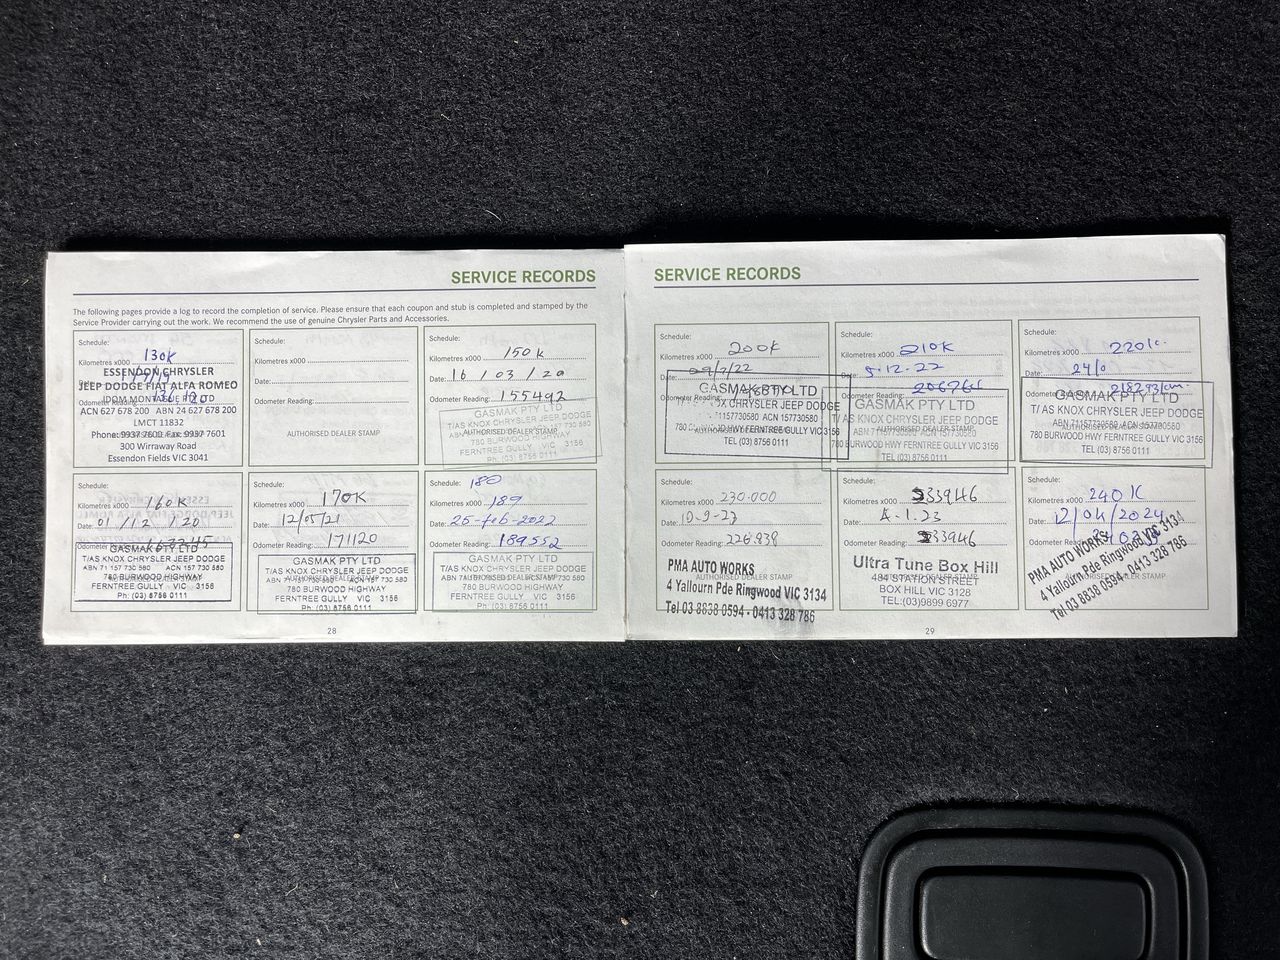 SERVICE RECORDS
The following pages provide a log to record the completion of service. Please ensure that each coupon and stub is completed and stamped by the
Service Provider carrying out the work. We recommend the use of genuine Chrysler Parts and Accessories.
Schedule:
Kilometres x000 130K
ESSENDON CHRYSLER
JEEP DODGE FIAT ALFA ROMEO
IDOM MONTAGUE PTY LTD
ACN 627 678 200 ABN 24 627 678 200
LMCT 11832
Phone: 9937 7600 Fax: 9937 7601
300 Wirraway Road
Essendon Fields VIC 3041
Schedule:
Kilometres x000
Date:
Odometer Reading:
AUTHORISED DEALER STAMP
Schedule:
Kilometres x000 150K
Date: 16 / 03 / 20
Odometer Reading: 155492
GASMAK PTY LTD
T/AS KNOX CHRYSLER JEEP DODGE
780 BURWOOD HIGHWAY
FERNTREE GULLY VIC 3156
Ph: (03) 8756 0111
Schedule:
Kilometres x000 160K
Date: 01 / 12 / 20
Odometer Reading:
GASMAK PTY LTD
T/AS KNOX CHRYSLER JEEP DODGE
ABN 71 157 730 580 ACN 157 730 580
780 BURWOOD HIGHWAY
FERNTREE GULLY VIC 3156
Ph: (03) 8756 0111
Schedule:
Kilometres x000 170K
Date: 12/05/21
Odometer Reading: 171120
GASMAK PTY LTD
T/AS KNOX CHRYSLER JEEP DODGE
ABN 71 157 730 580 ACN 157 730 580
AUTHORISED DEALER STAMP
780 BURWOOD HIGHWAY
FERNTREE GULLY VIC 3156
Ph: (03) 8756 0111
Schedule: 180
Kilometres x000 189
Date: 25-Feb-2022
Odometer Reading: 189552
GASMAK PTY LTD
T/AS KNOX CHRYSLER JEEP DODGE
AUTHORISED DEALER STAMP
780 BURWOOD HIGHWAY
FERNTREE GULLY VIC 3156
Ph: (03) 8756 0111
28
SERVICE RECORDS
Schedule:
Kilometres x000 200K
Date:
GASMAK PTY LTD
CHRYSLER JEEP DODGE
71157730580 ACN 157730580
AUTHORISED DEALER STAMP
HWY FERNTREE GULLY VIC 3156
TEL (03) 8756 0111
Schedule:
Kilometres x000 210K
Date: 5.12.22
Odometer Reading:
GASMAK PTY LTD
T/ AS KNOX CHRYSLER JEEP DODGE
AUTHORISED DEALER STAMP
780 BURWOOD HWY FERNTREE GULLY VIC 3156
TEL (03) 8756 0111
Schedule:
Kilometres x000 220K
Date:
GASMAK PTY LTD
T/ AS KNOX CHRYSLER JEEP DODGE
ABN 71157730580 ACN 157730580
AUTHORISED DEALER STAMP
780 BURWOOD HWY FERNTREE GULLY VIC 3156
TEL (03) 8756 0111
Schedule:
Kilometres x000 230.000
Date:
Odometer Reading: 226838
PMA AUTO WORKS
AUTHORISED DEALER STAMP
4 Yallourn Pde Ringwood VIC 3134
Tel 03 8838 0594 - 0413 328 786
Schedule:
Kilometres x000 233946
Date: 4.1.23
Odometer Reading: 233946
Ultra Tune Box Hill
AUTHORISED DEALER STAMP
484 STATION STREET
BOX HILL VIC 3128
TEL:(03)9899 6977
Schedule:
Kilometres x000 240K
Date: 12/04/2024
Odometer Reading:
PMA AUTO WORKS
4 Yallourn Pde Ringwood VIC 3134
Tel 03 8838 0594 - 0413 328 786
29